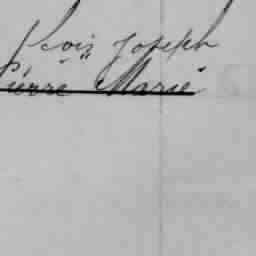 fcois Joseph
Pierre " Marie